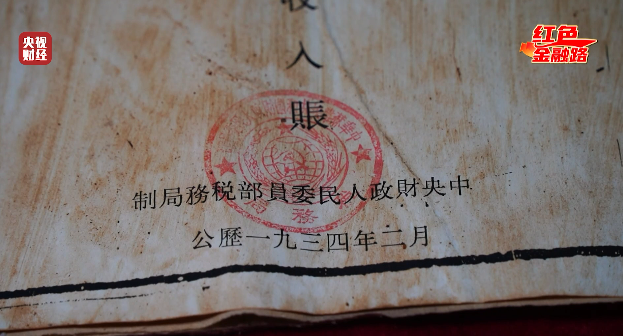 央视
财经
红色
金融路
收入賬
中央財政人民委員部税務局制
公歷一九三四年二月
務